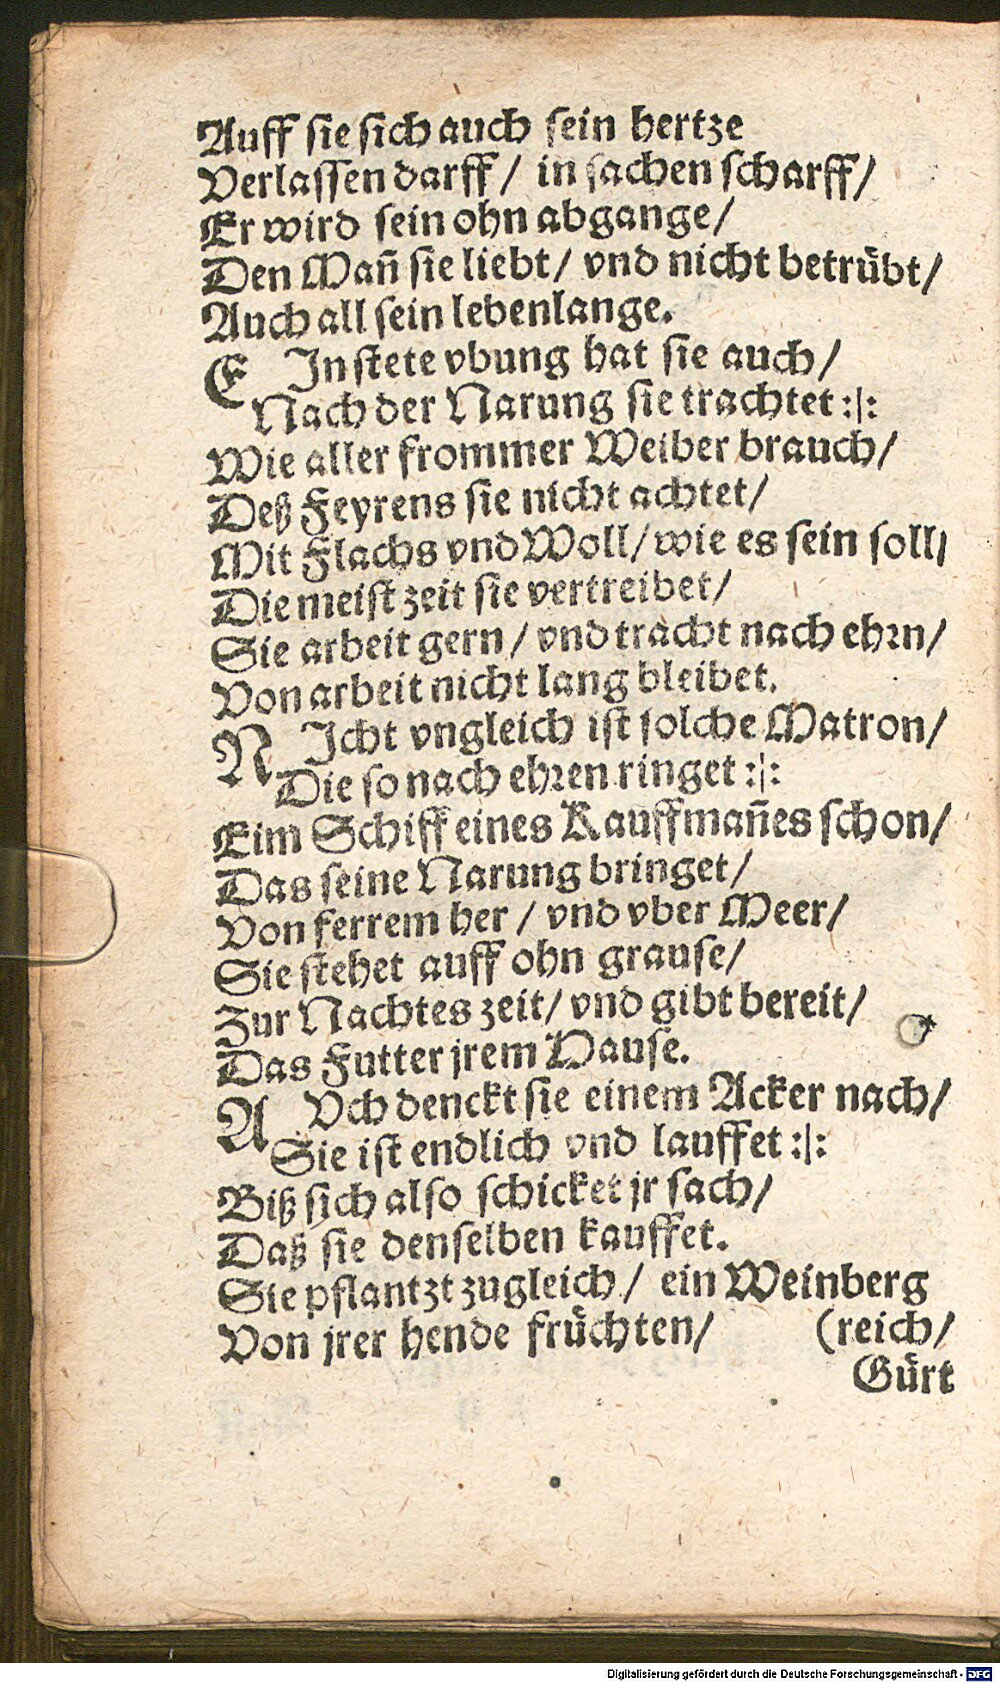 Auff sie sich auch sein hertze
Verlassen darff / in sachen scharff /
Er wird sein ohn abgange /
Den Mañ sie liebt / vnd nicht betruͤbt /
Auch all sein lebenlange.
E Jn stete vbung hat sie auch /
Nach der Narung sie trachtet :|:
Wie aller frommer Weiber brauch /
Deß Feyrens sie nicht achtet /
Mit Flachs vnd Woll / wie es sein soll /
Die meist zeit sie vertreibet /
Sie arbeit gern / vnd tracht nach ehrn /
Von arbeit nicht lang bleibet.
N Jcht vngleich ist solche Matron /
Die so nach ehren ringet :|:
Eim Schiff eines Kauffmañes schon /
Das seine Narung bringet /
Von ferrem her / vnd vber Meer /
Sie stehet auff ohn grause /
Zur Nachtes zeit / vnd gibt bereit /
Das Futter jrem Hause.
A Vch denckt sie einem Acker nach /
Sie ist endlich vnd lauffet :|:
Biß sich also schicket jr sach /
Daß sie denselben kauffet.
Sie pflantzt zugleich / ein Weinberg
Von jrer hende fruͤchten / (reich /
Guͤrt
Digitalisierung gefördert durch die Deutsche Forschungsgemeinschaft - DFG